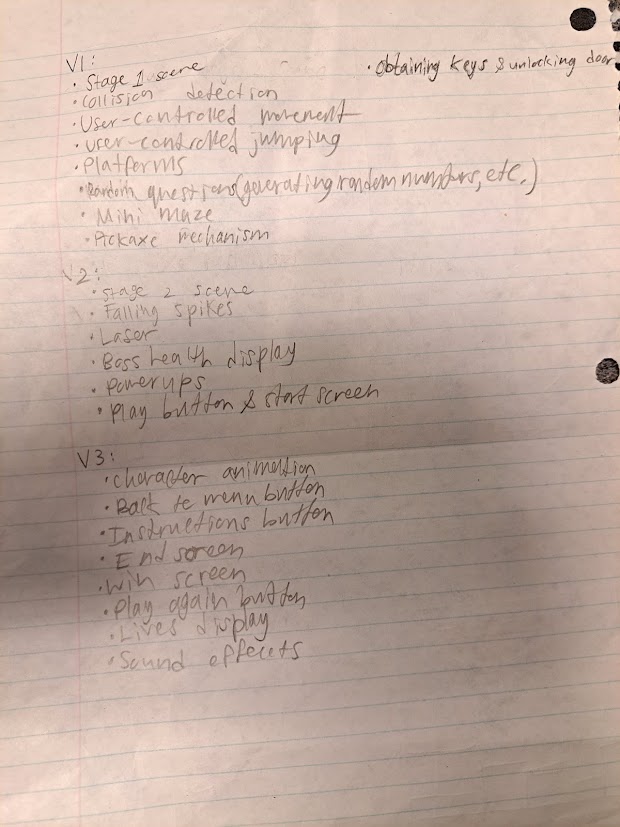 V1:
• Stage 1 scene
• Obtaining keys & unlocking door
• Collision detection
• User-controlled movement
• User-controlled jumping
• Platforms
• Random questions (generating random numbers, etc.)
• Mini maze
• Pickaxe mechanism
V2:
• Stage 2 scene
• Falling spikes
• Laser
• Boss health display
• Powerups
• Play button & start screen
V3:
• Character animation
• Back to menu button
• Instructions button
• End screen
• Win screen
• Play again button
• Lives display
• Sound effecets